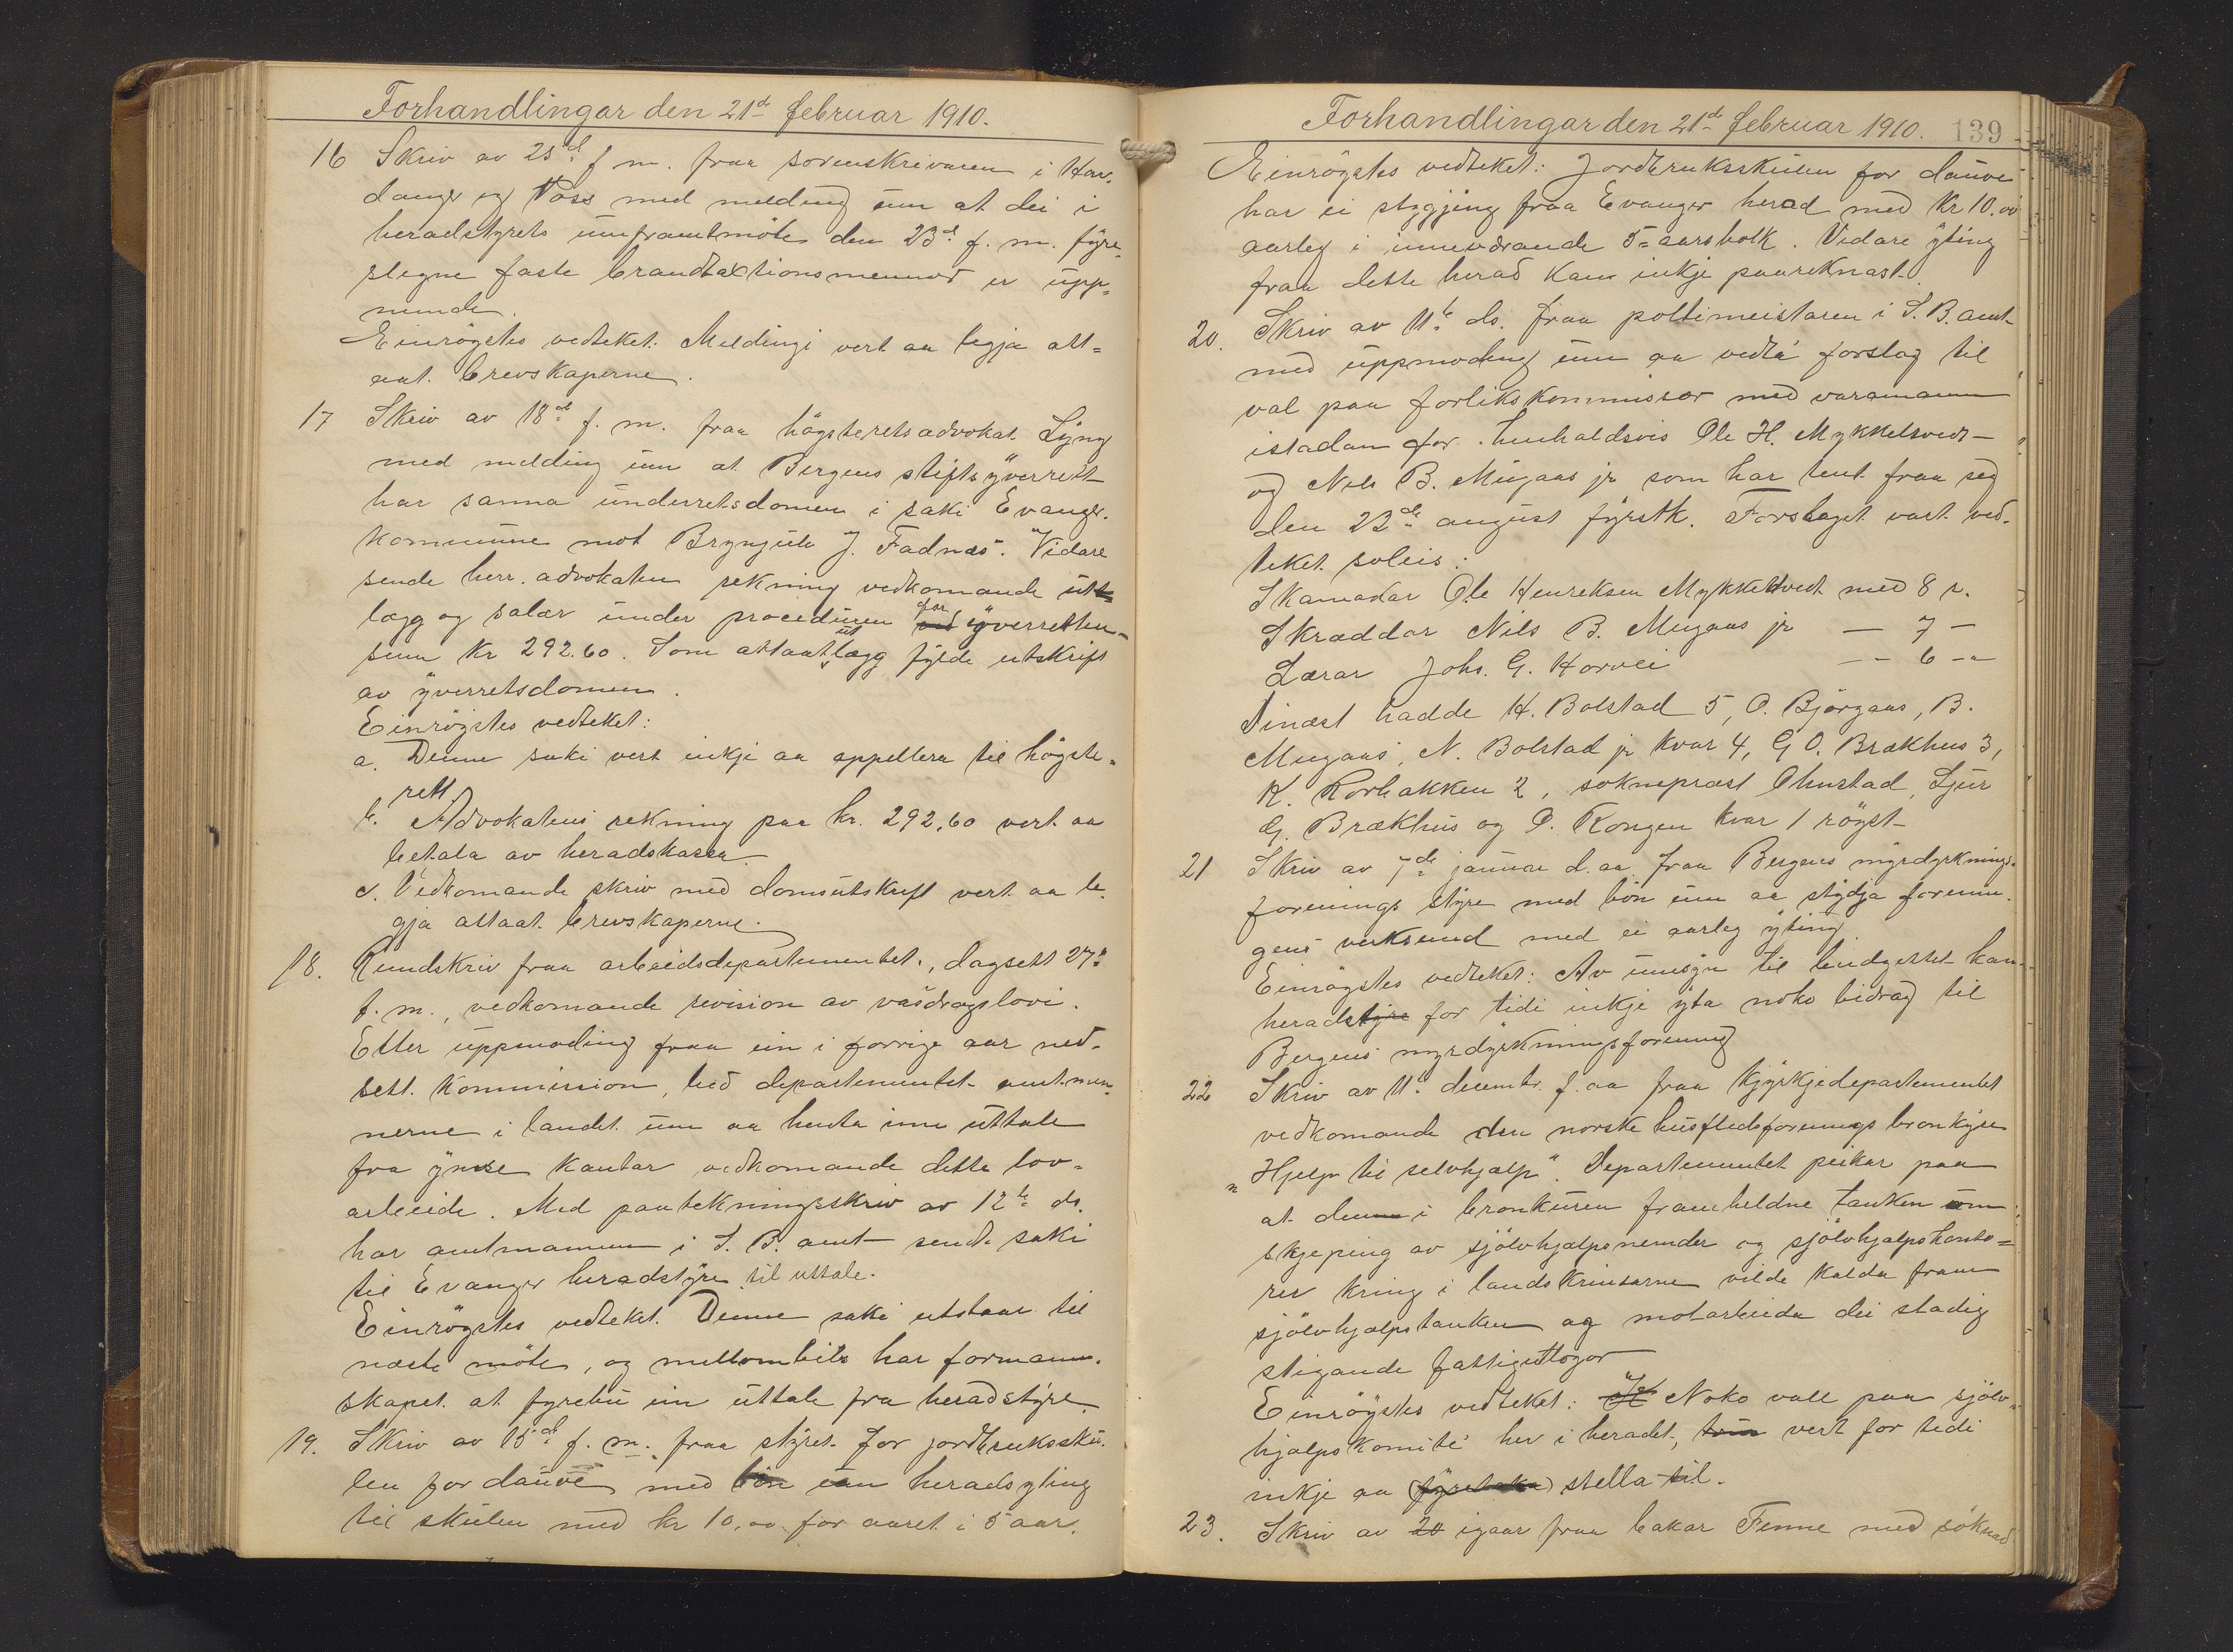 Forhandlingar den 21de februar 1910.
16 Skriv av 25d f. m. fraa sorenskrivaren i Har-
danger og Voss med melding um at dei i
heradstyrets umframtmöte den 23d f. m. fyre-
slegne faste brandtaxtionsmennar er upp-
nemde.
Einrögstes vedteket. Meldingi vert aa legja att-
aat brevskaperne.
17 Skriv av 18de f. m. fraa högsteretsadvokat Lyng
med melding um at Bergens stiftsyverrett
har sanna underretsdomen i saki Evanger
kommune mot Bryngjulv J. Fadnes. Vidare
sende herr advokaten rekning vedkomande ut-
lægg og salær under proceduren for yverretten
sum kr 292.60. Som attaat utlægg fylde utskrift
av yverretsdomen.
Einrögstes vedteket:
a. Denne saki vert inkje aa appellera til högste-
rett.
b. Advokatens rekning paa kr. 292,60 vert aa
betala av heradskassa.
c. Vedkomande skriv med domsutskrift vert aa le-
gja attaat brevskaperne.
18. Rundskriv fraa arbeidsdepartementet, dagsett 27d
f. m., vedkomande revision av vasdragslovi.
Etter uppmoding fraa ein i forrige aar ned-
sett kommission, bed departementet amtmen-
nerne i landet um aa henta inn uttale
fra ymse kantar vedkomande dette lov-
arbeide. Med paatekningsskriv av 12te ds.
har amtmannen i S. B. amt sendt saki
til Evanger heradstyre til uttale.
Einrögstes vedteket. Denne saki utstaar til
næste möte, og mellombils har formann-
skapet at fyrebu ein uttale fra heradstyre.
19. Skriv av 15d f. m. fraa styret for jordbruksskú-
len for dauve med bön um heradsyting
til skulen med kr 10,00 for aaret i 5 aar.
Forhandlingar den 21d februar 1910. 139
Einrögstes vedteket: Jordbruksskulen for dauve
har ei stygjing fraa Evanger herad med Kr 10.00
aarleg i inneværande 5-aarsbolk. Vidare yting
fraa dette herad kann inkje paareknast.
20. Skriv av 11te ds. fraa politimeistaren i S. B. amt
med uppmoding um aa vedta forslag til
val paa forlikskommissær med varamann
istadan for henhaldsvis Ole H. Mykkeltvedt
og Nils B. Mugaas jr som har tent fraa seg
den 22de august fyrstk. Forslaget vart ved-
teket soleis:
Skomadar Ole Henriksen Mykkeltvedt med 8 r.
Skræddar Nils B. Mugaas jr — 7 —
Lærar Johs. G. Horvei — 6 —
Dinæst hadde H. Bolstad 5, O. Björgaas, B.
Mugaas, N. Bolstad jr kvar 4, G O. Brækhus 3,
K. Rorbakken 2, sokneprest Ohnstad, Sjur
G. Brækhus og O. Kongen kvar 1 röyst
21 Skriv av 7de januar d. aa. fraa Bergens myrdyrknings-
forenings styre med bön um aa stydja forenin-
gens verksemd med ei aarleg yting
Einrögstes vedteket: Av umsyn til budgettet kan
heradstyre for tidi inkje yta noko bidrag til
Bergens myrdyrkningsforening
22 Skriv av 11d decembr. f. aa fraa Kyrkjedepartementet
vedkomande den norske husflidsforenings bronkyre
"Hjelp til selvhjælp". Departementet peikar paa
at denne i bronkuren framheldne tanken um
skjeping av sjölvhjælpsnemder og sjölvhjælpskonto-
rer kring i landskrinsarne vilde kalda fram
sjölvhjælpstanken og motarbeida dei stadig
stigande fattigutlogor
Einrögstes vedteket: Noko vall paa sjölv-
hjælpskomité her i heradet, vert for tidi
inkje aa (fyretaka) stella til.
23. Skriv av 20 igaar fraa bakar Fenne med söknad